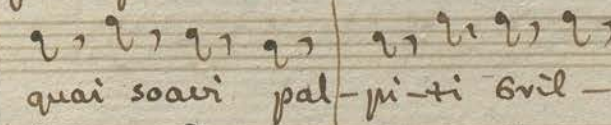 quai soavi pal-pi-ti Bril-